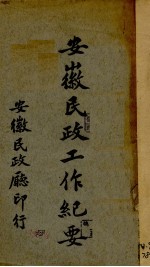 安徽民政工作紀要
安徽民政廳印行